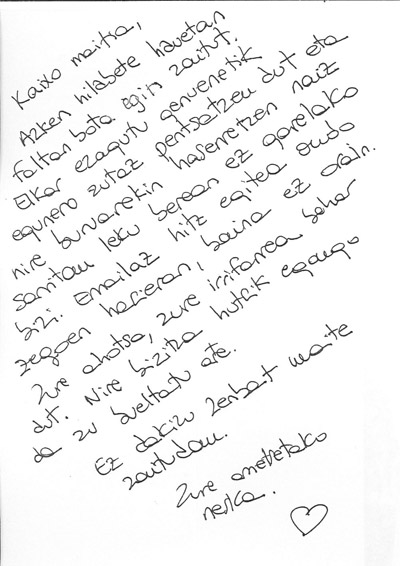 Kaixo maitia,
Azken hilabete hauetan
faltan bota egin zaitut.
Elkar ezagutu genuenetik
egunero zutaz pentsatzen dut eta
nire buruarekin haserretzen naiz
sarritan leku berean ez garelako
bizi. Emailaz hitz egitea ondo
zegoen hasieran, baina ez orain.
Zure ahotsa, zure irrifarrea behar
dut. Nire bizitza hutsik egongo
da zu bueltatu arte.
Ez dakizu zenbat maite
zaitudan.
Zure ametsetako
neska.